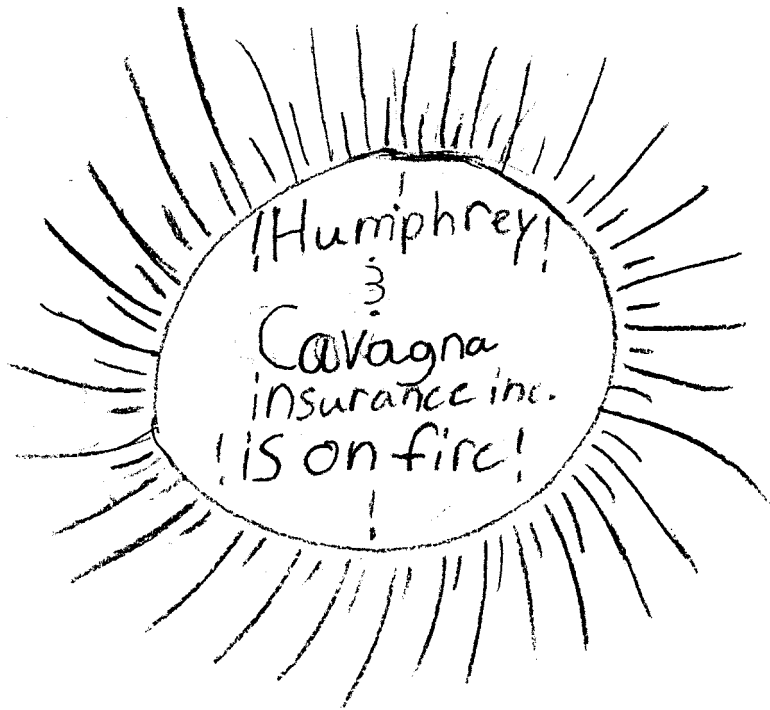 !Humphrey!
&
Cavagna
insurance inc.
!is on fire!